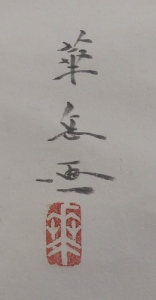 華岳画